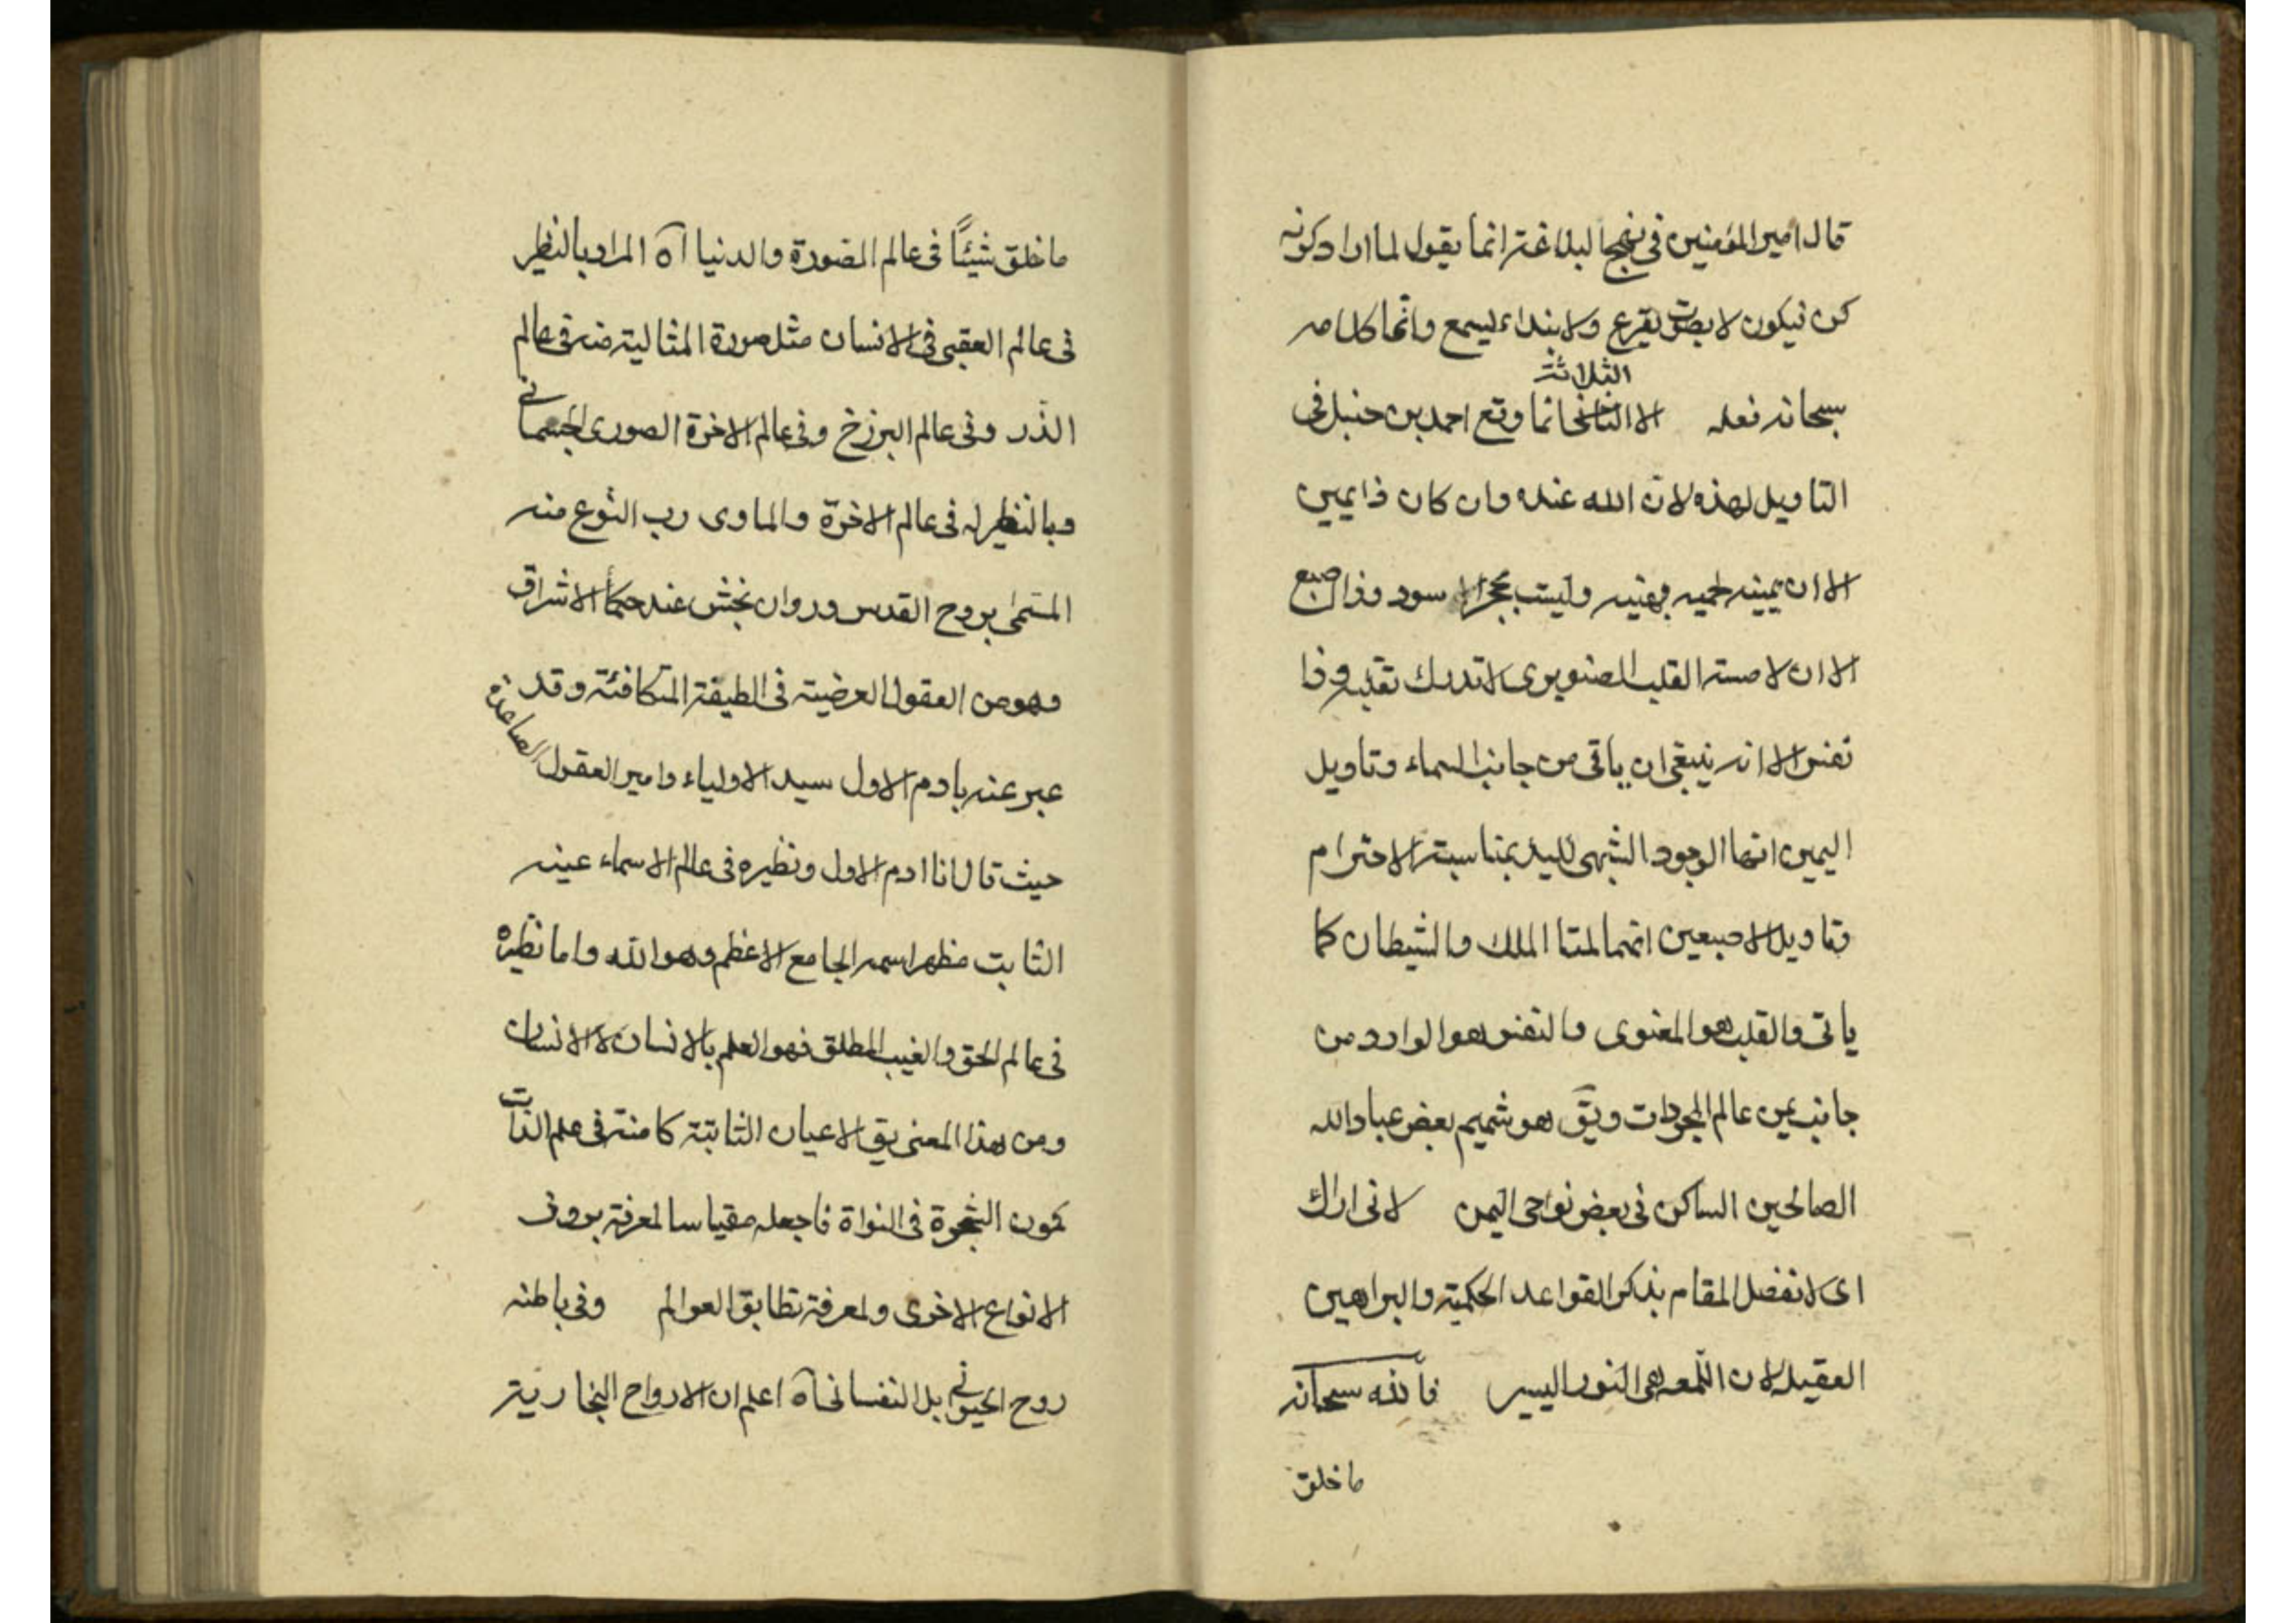 قال امير المؤمنين فى نهج البلاغة انما يقول لما اراد كونه
كن فيكون لا بصوت يقرع ولا بنداء يسمع وانما كلامه
الثلاثة
سبحانه فعله الا انما وقع احمد بن حنبل فى
التاويل لهذه لان الله عنده وان كان ذا يمين
الا ان يمينه وليست بحجر الاسود وذا اصبع
الا ان لامسة القلب الصنوبرى لا تدرك تقلبه وذا
نفس الا انه ينبغى ان ياتى من جانب السماء وتاويل
اليمين انها الوجود الشبهى لليد بمناسبة الاحترام
وتاويل الاصبعين انهما لمتا الملك والشيطان كما
ياتى والقلب هو المعنوى والنفس هو الوارد من
جانب يمن عالم المجردات ويق هو شميم بعض عباد الله
الصالحين الساكن فى بعض نواحى اليمن لانى اراك
اى لا نفصل المقام بذكر القواعد الحكمية والبراهين
العقيلة لان اللمعه هى النور اليسير فانه سبحانه
ما خلق
ما خلق شيئًا فى عالم الصورة والدنيا آه المراد بالنظير
فى عالم العقبى فى الانسان مثل صورة المثالية منه فى عالم
الذّر وفى عالم البرزخ وفى عالم الاخرة الصورى الجسمانى
وبالنظير له فى عالم الاخرة والماوى رب النوع منه
المسمى بروح القدس وروان بخش عند حكماء الاشراق
وهو من العقول العرضية فى الطبقة المتكافئة وقد
عبر عنه بادم الاول سيد الاولياء وامير العقول الصاعدة
حيث قال انا ادم الاول ونظيره فى عالم الاسماء عينه
الثابت مظهر اسمه الجامع الاعظم وهو الله واما نظيره
فى عالم الحق والغيب المطلق فهو العلم بالانسان لا الانسان
ومن هذا المعنى يق الاعيان الثابتة كامنة فى علم الذات
كمون الشجرة فى النواة فاجعله مقياسا لمعرفة بروز
الانواع الاخرى ولمعرفة تطابق العوالم وفى باطنه
روح الحيوانى بل النفسانى آه اعلم ان الارواح البخارية